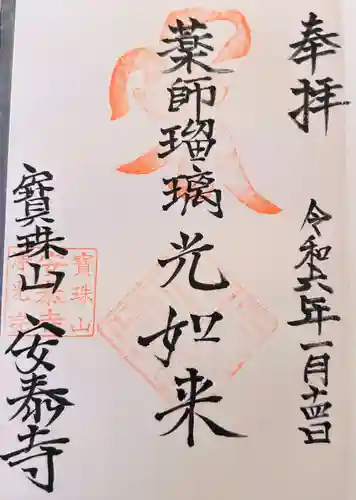 奉拝
令和六年一月十四日
薬師瑠璃光如来
寳珠山 安泰寺
寳珠山
安泰寺